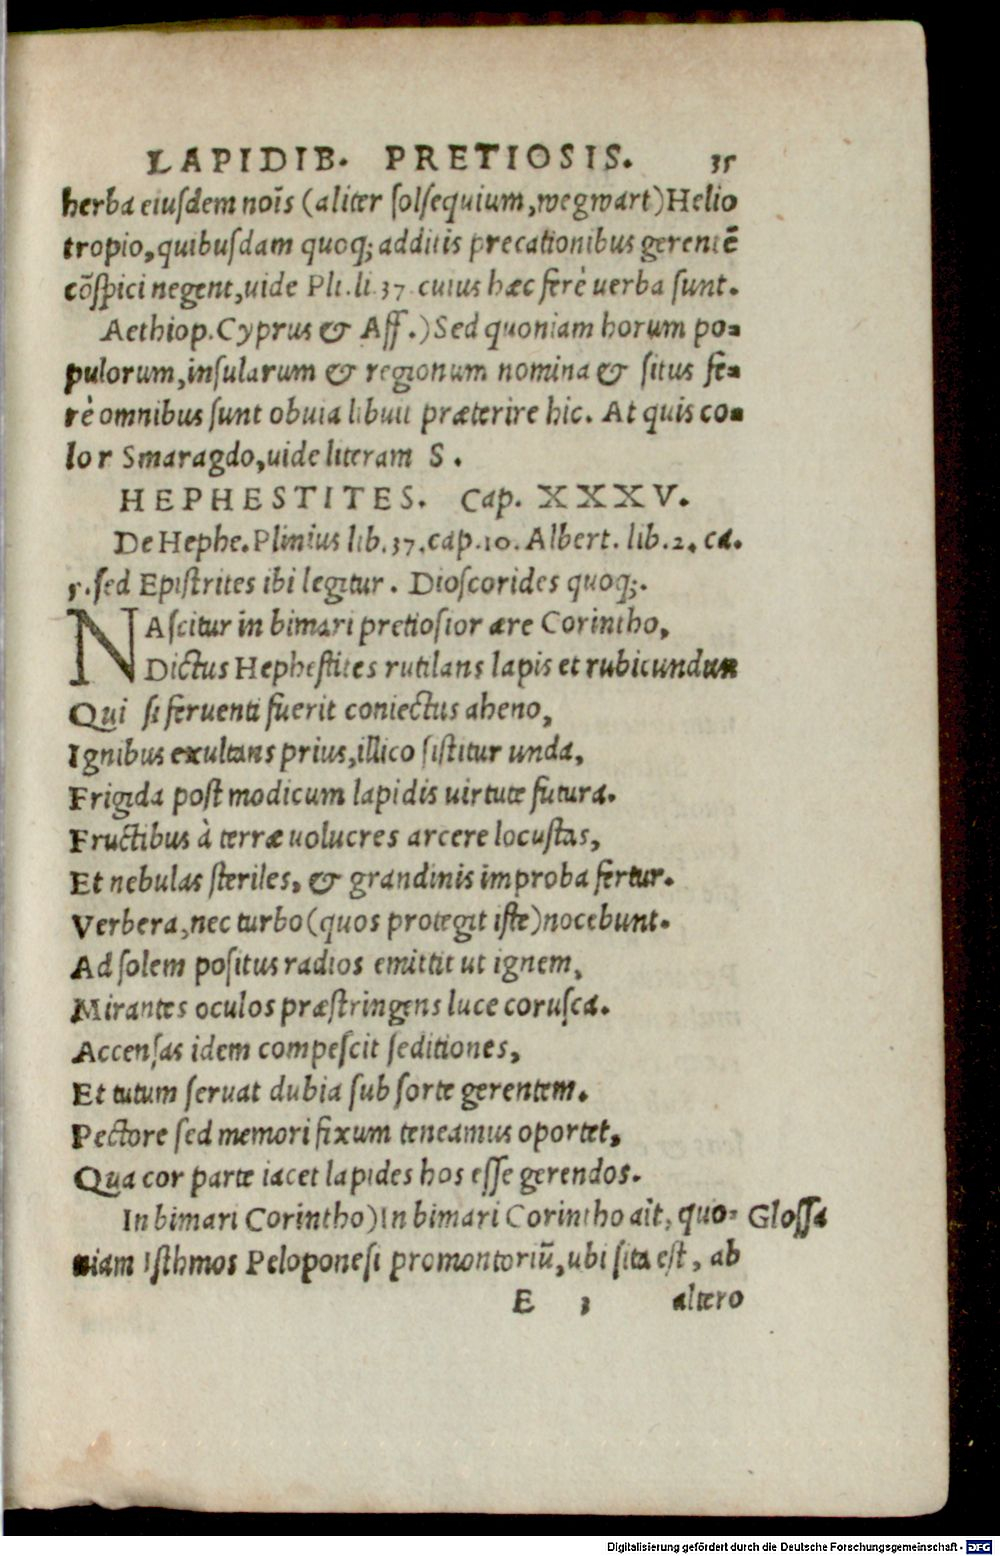 LAPIDIB. PRETIOSIS. 35
herba eiusdem noīs (aliter solsequium, wegwart) Helio
tropio, quibusdam quoq; additis precationibus gerentē
cōspici negent, uide Pli. li 37 cuius hæc ferè uerba sunt.
Aethiop. Cyprus & Aff.) Sed quoniam horum po-
pulorum, insularum & regionum nomina & situs fe-
rè omnibus sunt obuia libuit præterire hic. At quis co-
lor Smaragdo, uide literam S.
HEPHESTITES. Cap. XXXV.
De Hephe. Plinius lib. 37. cap. 10. Albert. lib. 2. ca.
5. sed Epistrites ibi legitur. Dioscorides quoq;.
NAscitur in bimari pretiosior ære Corintho,
Dictus Hephestites rutilans lapis et rubicundus
Qui si feruenti fuerit coniectus aheno,
Ignibus exultans prius, illico sistitur unda,
Frigida post modicum lapidis uirtute futura.
Fructibus à terræ uolucres arcere locustas,
Et nebulas steriles, & grandinis improba fertur.
Verbera, nec turbo (quos protegit iste) nocebunt.
Ad solem positus radios emittit ut ignem,
Mirantes oculos præstringens luce corusca.
Accensas idem compescit seditiones,
Et tutum seruat dubia sub sorte gerentem.
Pectore sed memori fixum teneamus oportet,
Qua cor parte iacet lapides hos esse gerendos.
In bimari Corintho) In bimari Corintho ait, quo- Glossa
niam Isthmos Peloponesi promontoriū, ubi sita est, ab
E 3 altero
Digitalisierung gefördert durch die Deutsche Forschungsgemeinschaft - DFG